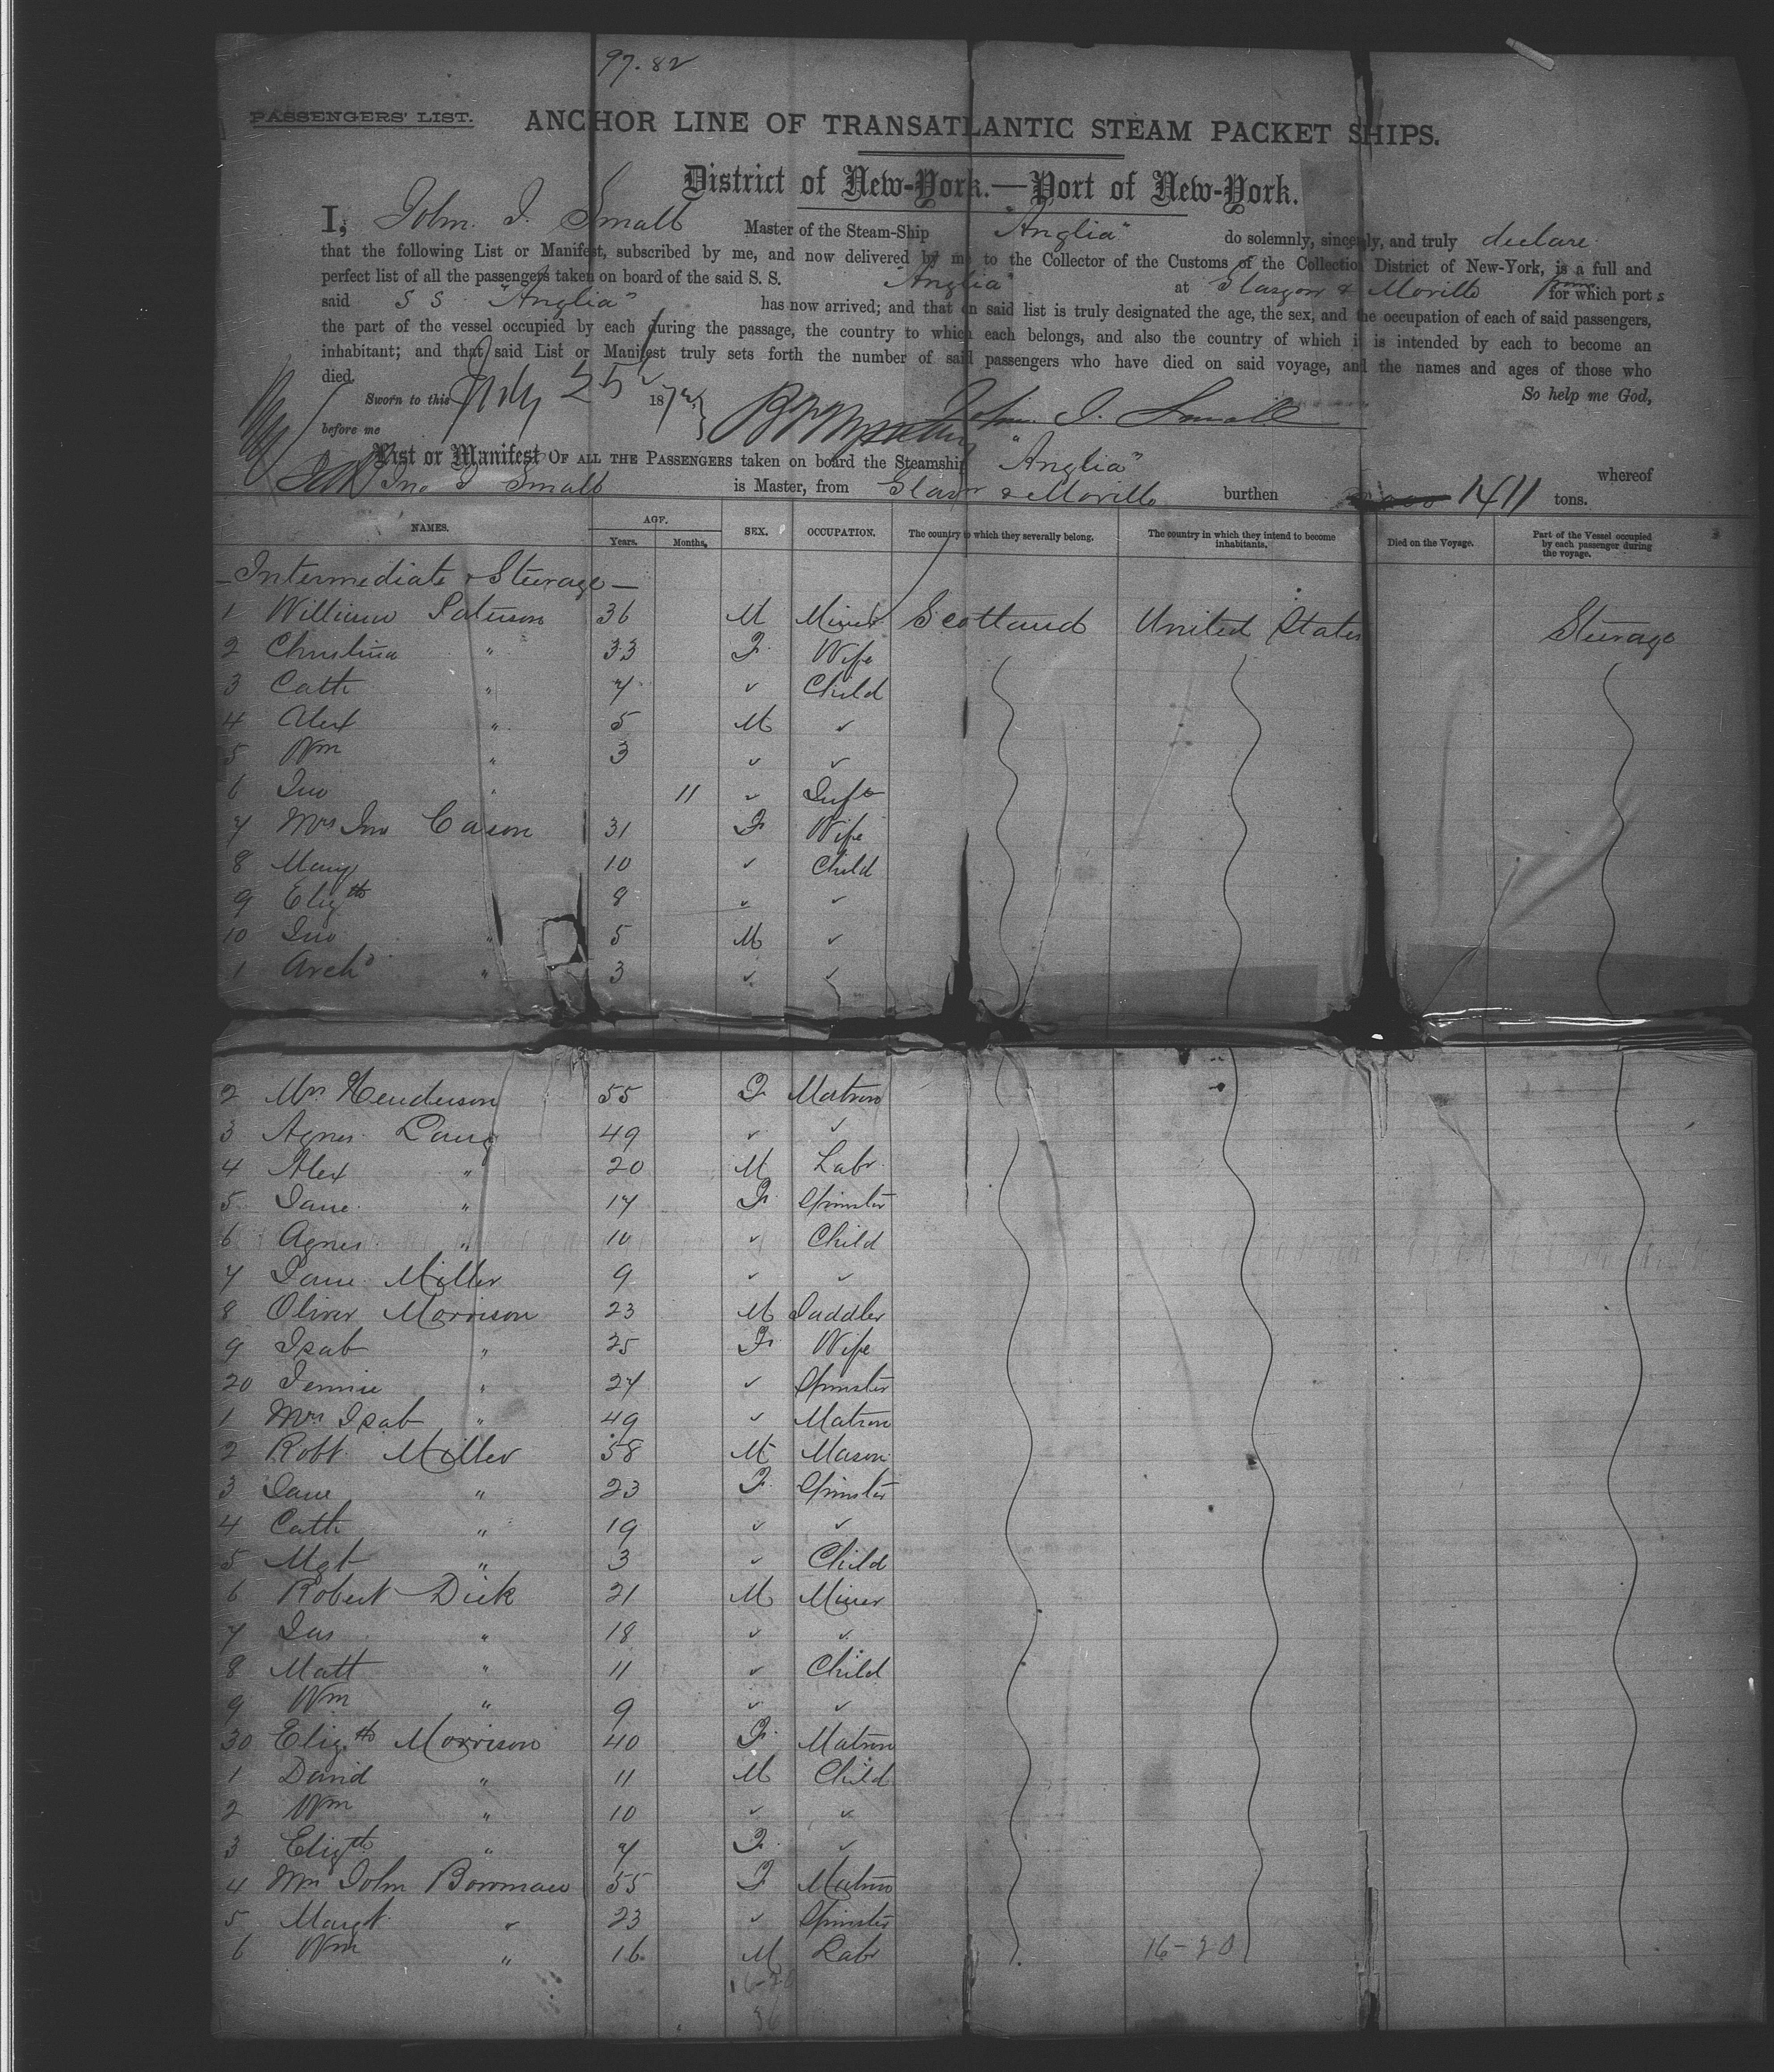 97.82
PASSENGERS' LIST. ANCHOR LINE OF TRANSATLANTIC STEAM PACKET SHIPS.
District of New-York.—Port of New-York.
I, John. I. Small Master of the Steam-Ship "Anglia" do solemnly, sincerely, and truly declare
that the following List or Manifest, subscribed by me, and now delivered by me to the Collector of the Customs of the Collection District of New-York, is a full and
perfect list of all the passengers taken on board of the said S. S. "Anglia" at Glasgow & Moville from which port s
said S S "Anglia" has now arrived; and that on said list is truly designated the age, the sex, and the occupation of each of said passengers,
the part of the vessel occupied by each during the passage, the country to which each belongs, and also the country of which it is intended by each to become an
inhabitant; and that said List or Manifest truly sets forth the number of said passengers who have died on said voyage, and the names and ages of those who
died. So help me God,
Sworn to this July 25 187
before me John. I. Small
List or Manifest OF ALL THE PASSENGERS taken on board the Steamship "Anglia" whereof
Jno I Small is Master, from Glasgw & Moville burthen 1411 tons.
NAMES. AGE. Years. Months. SEX. OCCUPATION. The country to which they severally belong. The country in which they intend to become inhabitants. Died on the Voyage. Part of the Vessel occupied by each passenger during the voyage.
— Intermediate & Steerage —
1 William Paterson 36 M Miner Scotland United States Steerage
2 Christina " 33 F. Wife
3 Cath " 7 ✓ Child
4 Alex " 5 M ✓
5 Wm " 3 ✓ ✓
6 Jno " 11 ✓ Inft
7 Mrs Jno Cason 31 F Wife
8 Mary 10 ✓ Child
9 Elizth 8 ✓ ✓
10 Jno " 5 M ✓
1 Archd " 3 ✓ ✓
2 Mrs Henderson 55 F Matron
3 Agnes Lang 49 ✓ ✓
4 Alex " 20 M Labr
5 Jane " 17 F. Spinster
6 Agnes " 10 ✓ Child
7 Jane Miller 9 ✓ ✓
8 Oliver Morrison 23 M Saddler
9 Isab " 25 F. Wife
20 Jennie " 24 ✓ Spinster
1 Mrs Isab " 49 ✓ Matron
2 Robt Miller 58 M Mason
3 Jane " 23 F. Spinster
4 Cath " 19 ✓ ✓
5 Mgt " 3 ✓ Child
6 Robert Dick 21 M Miner
7 Jas " 18 ✓ ✓
8 Matt " 11 ✓ Child
9 Wm " 9 ✓ ✓
30 Elizth Morrison 40 F. Matron
1 David " 11 M Child
2 Wm " 10 ✓ ✓
3 Elizth " 7 F. ✓
4 Mrs John Bowman 55 F Matron
5 Margt " 23 ✓ Spinster
6 Wm " 16 M Labr 16-20
16-20
36